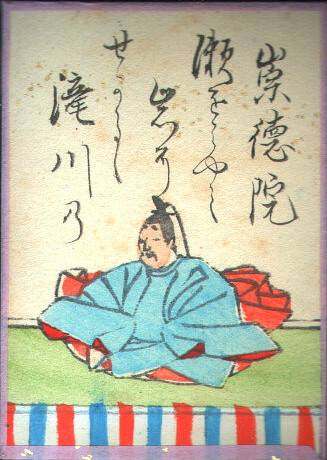 崇徳院
瀬をはやミ
岩に
せかるゝ
滝川乃